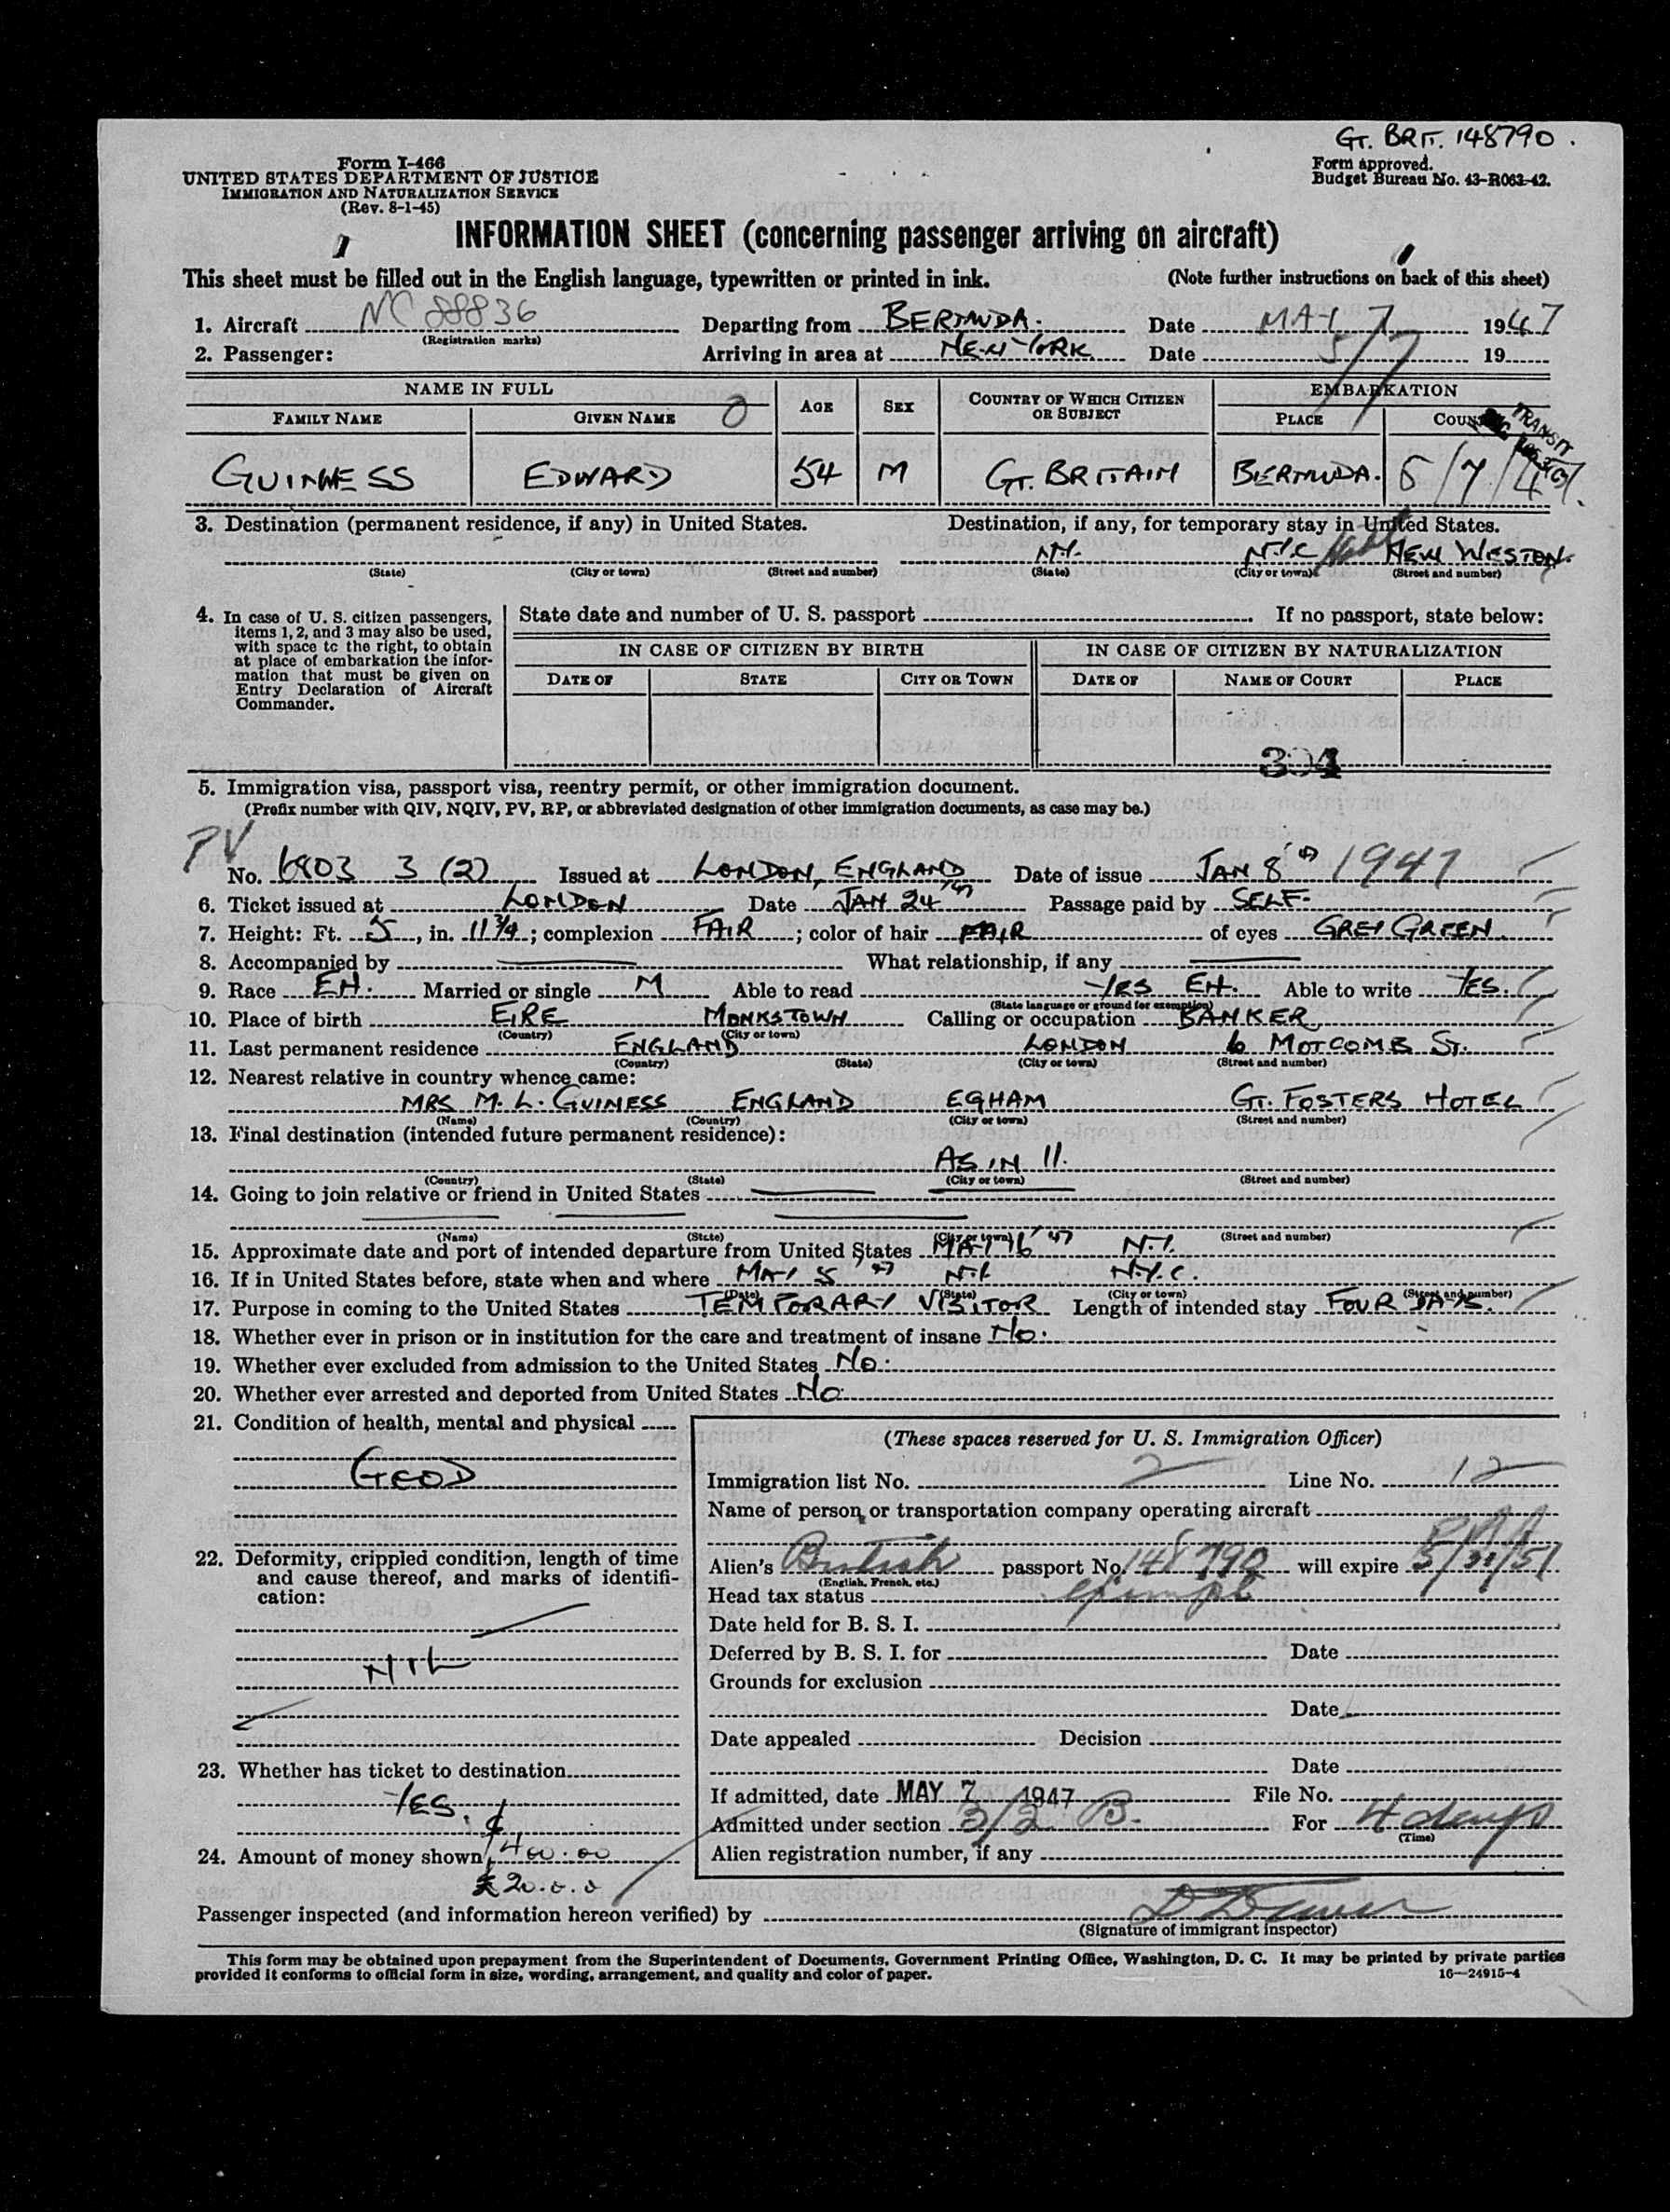 GT. BRIT. 148790.
Form I-466
UNITED STATES DEPARTMENT OF JUSTICE
IMMIGRATION AND NATURALIZATION SERVICE
(Rev. 8-1-45)
Form approved.
Budget Bureau No. 43-R063-42.
INFORMATION SHEET (concerning passenger arriving on aircraft)
This sheet must be filled out in the English language, typewritten or printed in ink. (Note further instructions on back of this sheet)
1. Aircraft NC 88836 Departing from BERMUDA. Date MAY 7 1947
(Registration marks)
2. Passenger: Arriving in area at NEW YORK Date 5/7 19
NAME IN FULL AGE SEX COUNTRY OF WHICH CITIZEN OR SUBJECT EMBARKATION
FAMILY NAME GIVEN NAME PLACE COUNTRY
TRANSIT
GUINNESS EDWARD 54 M GT. BRITAIN BERMUDA. 5/7/47.
3. Destination (permanent residence, if any) in United States. Destination, if any, for temporary stay in United States.
N.Y. N.Y.C Hotel NEW WESTON.
(State) (City or town) (Street and number) (State) (City or town) (Street and number)
4. In case of U. S. citizen passengers, items 1, 2, and 3 may also be used, with space to the right, to obtain at place of embarkation the information that must be given on Entry Declaration of Aircraft Commander.
State date and number of U. S. passport If no passport, state below:
IN CASE OF CITIZEN BY BIRTH IN CASE OF CITIZEN BY NATURALIZATION
DATE OF STATE CITY OR TOWN DATE OF NAME OF COURT PLACE
304
5. Immigration visa, passport visa, reentry permit, or other immigration document.
(Prefix number with QIV, NQIV, PV, RP, or abbreviated designation of other immigration documents, as case may be.)
PV
No. 6803 3 (2) Issued at LONDON, ENGLAND Date of issue JAN 8 '47 1947
6. Ticket issued at LONDON Date JAN 24 '47 Passage paid by SELF.
7. Height: Ft. 5, in. 11 3/4; complexion FAIR; color of hair FAIR of eyes GREY GREEN
8. Accompanied by What relationship, if any
9. Race EN. Married or single M Able to read YES EN. Able to write YES.
(State language or ground for exemption)
10. Place of birth EIRE MONKSTOWN Calling or occupation BANKER
(Country) (City or town)
11. Last permanent residence ENGLAND LONDON 6 MOTCOMB ST.
(Country) (State) (City or town) (Street and number)
12. Nearest relative in country whence came:
MRS M. L. GUINESS ENGLAND EGHAM GT. FOSTERS HOTEL
(Name) (Country) (City or town) (Street and number)
13. Final destination (intended future permanent residence):
AS IN 11.
(Country) (State) (City or town) (Street and number)
14. Going to join relative or friend in United States
(Name) (State) (City or town) (Street and number)
15. Approximate date and port of intended departure from United States MAY 16 '47 N.Y.
16. If in United States before, state when and where MAY 5 '47 N.Y. N.Y.C.
(Date) (State) (City or town) (Street and number)
17. Purpose in coming to the United States TEMPORARY VISITOR Length of intended stay FOUR DAYS.
18. Whether ever in prison or in institution for the care and treatment of insane No.
19. Whether ever excluded from admission to the United States No.
20. Whether ever arrested and deported from United States No.
21. Condition of health, mental and physical
GOOD
22. Deformity, crippled condition, length of time and cause thereof, and marks of identification:
NIL
23. Whether has ticket to destination
YES.
24. Amount of money shown $400.00
£20.0.0
(These spaces reserved for U. S. Immigration Officer)
Immigration list No. 2 Line No. 12
Name of person or transportation company operating aircraft
PAA
Alien's British passport No. 148790 will expire
(English, French, etc.)
Head tax status exempt
Date held for B. S. I.
Deferred by B. S. I. for Date
Grounds for exclusion
Date
Date appealed Decision
Date
If admitted, date MAY 7 1947 File No.
Admitted under section 3/2 B. For 4 days
(Time)
Alien registration number, if any
Passenger inspected (and information hereon verified) by
(Signature of immigrant inspector)
This form may be obtained upon prepayment from the Superintendent of Documents, Government Printing Office, Washington, D. C. It may be printed by private parties
provided it conforms to official form in size, wording, arrangement, and quality and color of paper. 16—24915-4